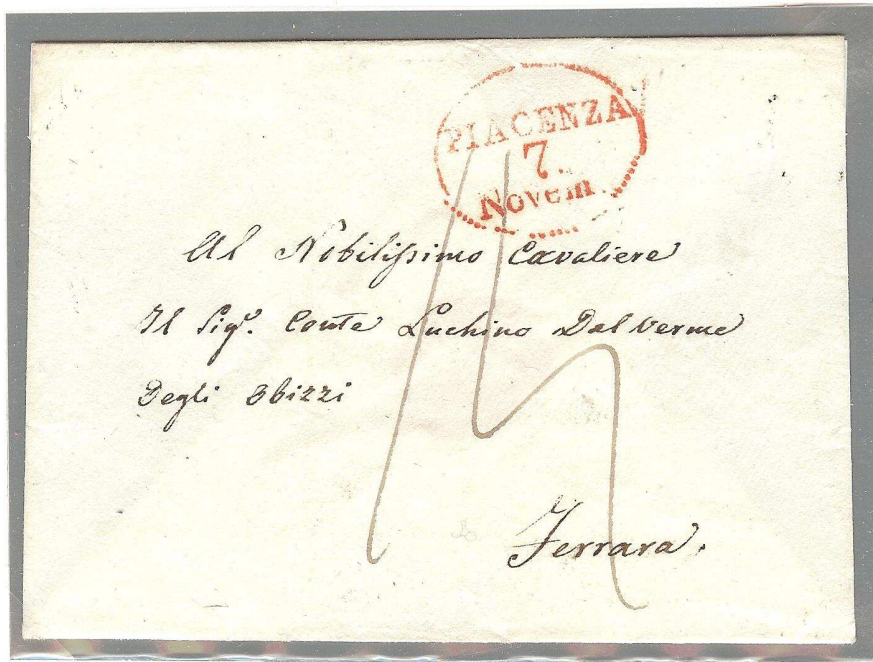 PIACENZA
7.
Novem
Al Nobilissimo Cavaliere
Il Sigr. Conte Luchino Dal Verme
Degli Obizzi
Ferrara.